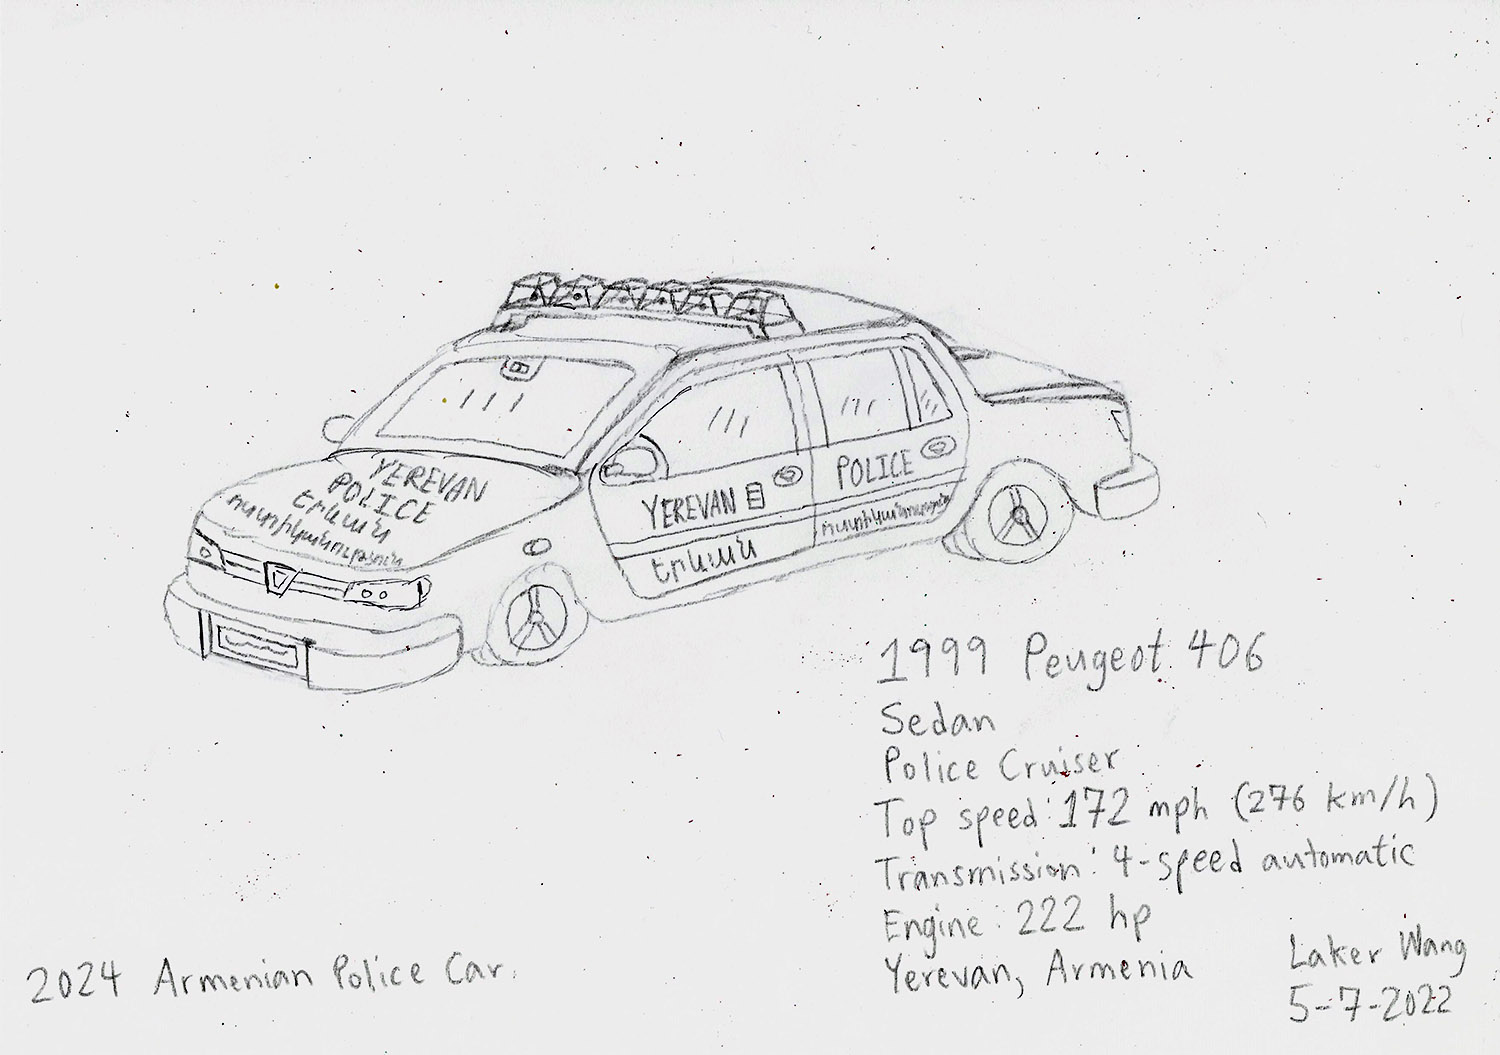 YEREVAN
POLICE
Երևան
ոստիկանություն
YEREVAN
POLICE
Երևան
ոստիկանություն
1999 Peugeot 406
Sedan
Police Cruiser
Top speed: 172 mph (276 km/h)
Transmission: 4-speed automatic
Engine: 222 hp
Yerevan, Armenia
Laker Wang
5-7-2022
2024 Armenian Police Car